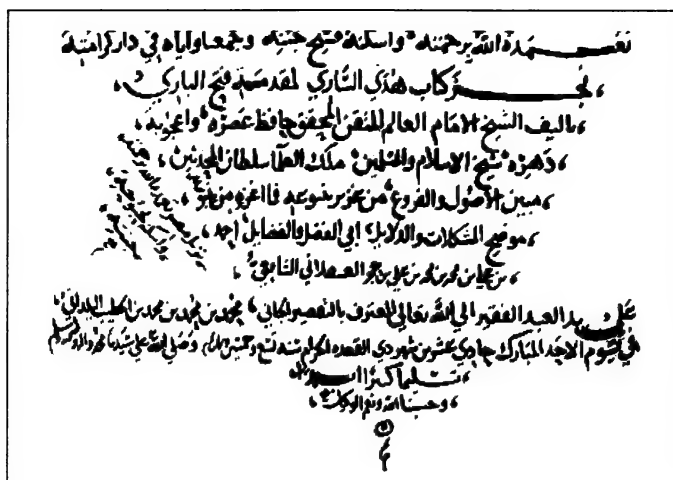 تغمده الله برحمته واسكنه فسيح جنته وجمعنا واياه في دار كرامته
نجز كتاب هدي الساري لمقدمة فتح الباري
تاليف الشيخ الامام العالم المتقن المحقق حافظ عصره واعجوبة
دهره شيخ الاسلام والمسلمين ملك العلما سلطان المحدثين
مبين الاصول والفروع من
موضح المشكلات والدلايل ابي الفضل والفضايل احمد
بن علي بن محمد بن محمد بن علي بن حجر العسقلاني الشافعي
علي يد العبد الفقير الي الله تعالي المعترف بالتقصير محمد بن محمد بن محمد بن الخطيب
في يوم الاحد المبارك حادي عشر من شهر ذي القعده الحرام سنه تسع وخمسين وصلي الله علي سيدنا محمد واله وسلم
تسليما كثيرا
وحسبنا الله ونعم الوكيل